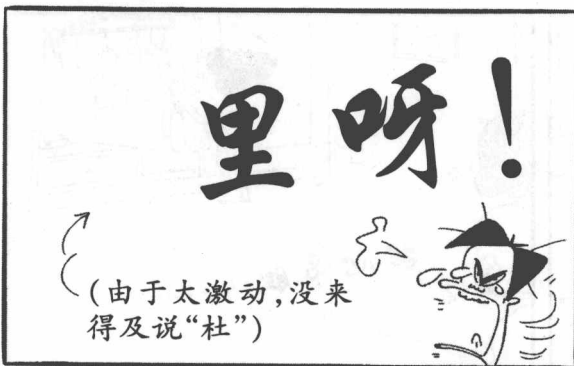 里呀！
(由于太激动,没来
得及说“杜”)